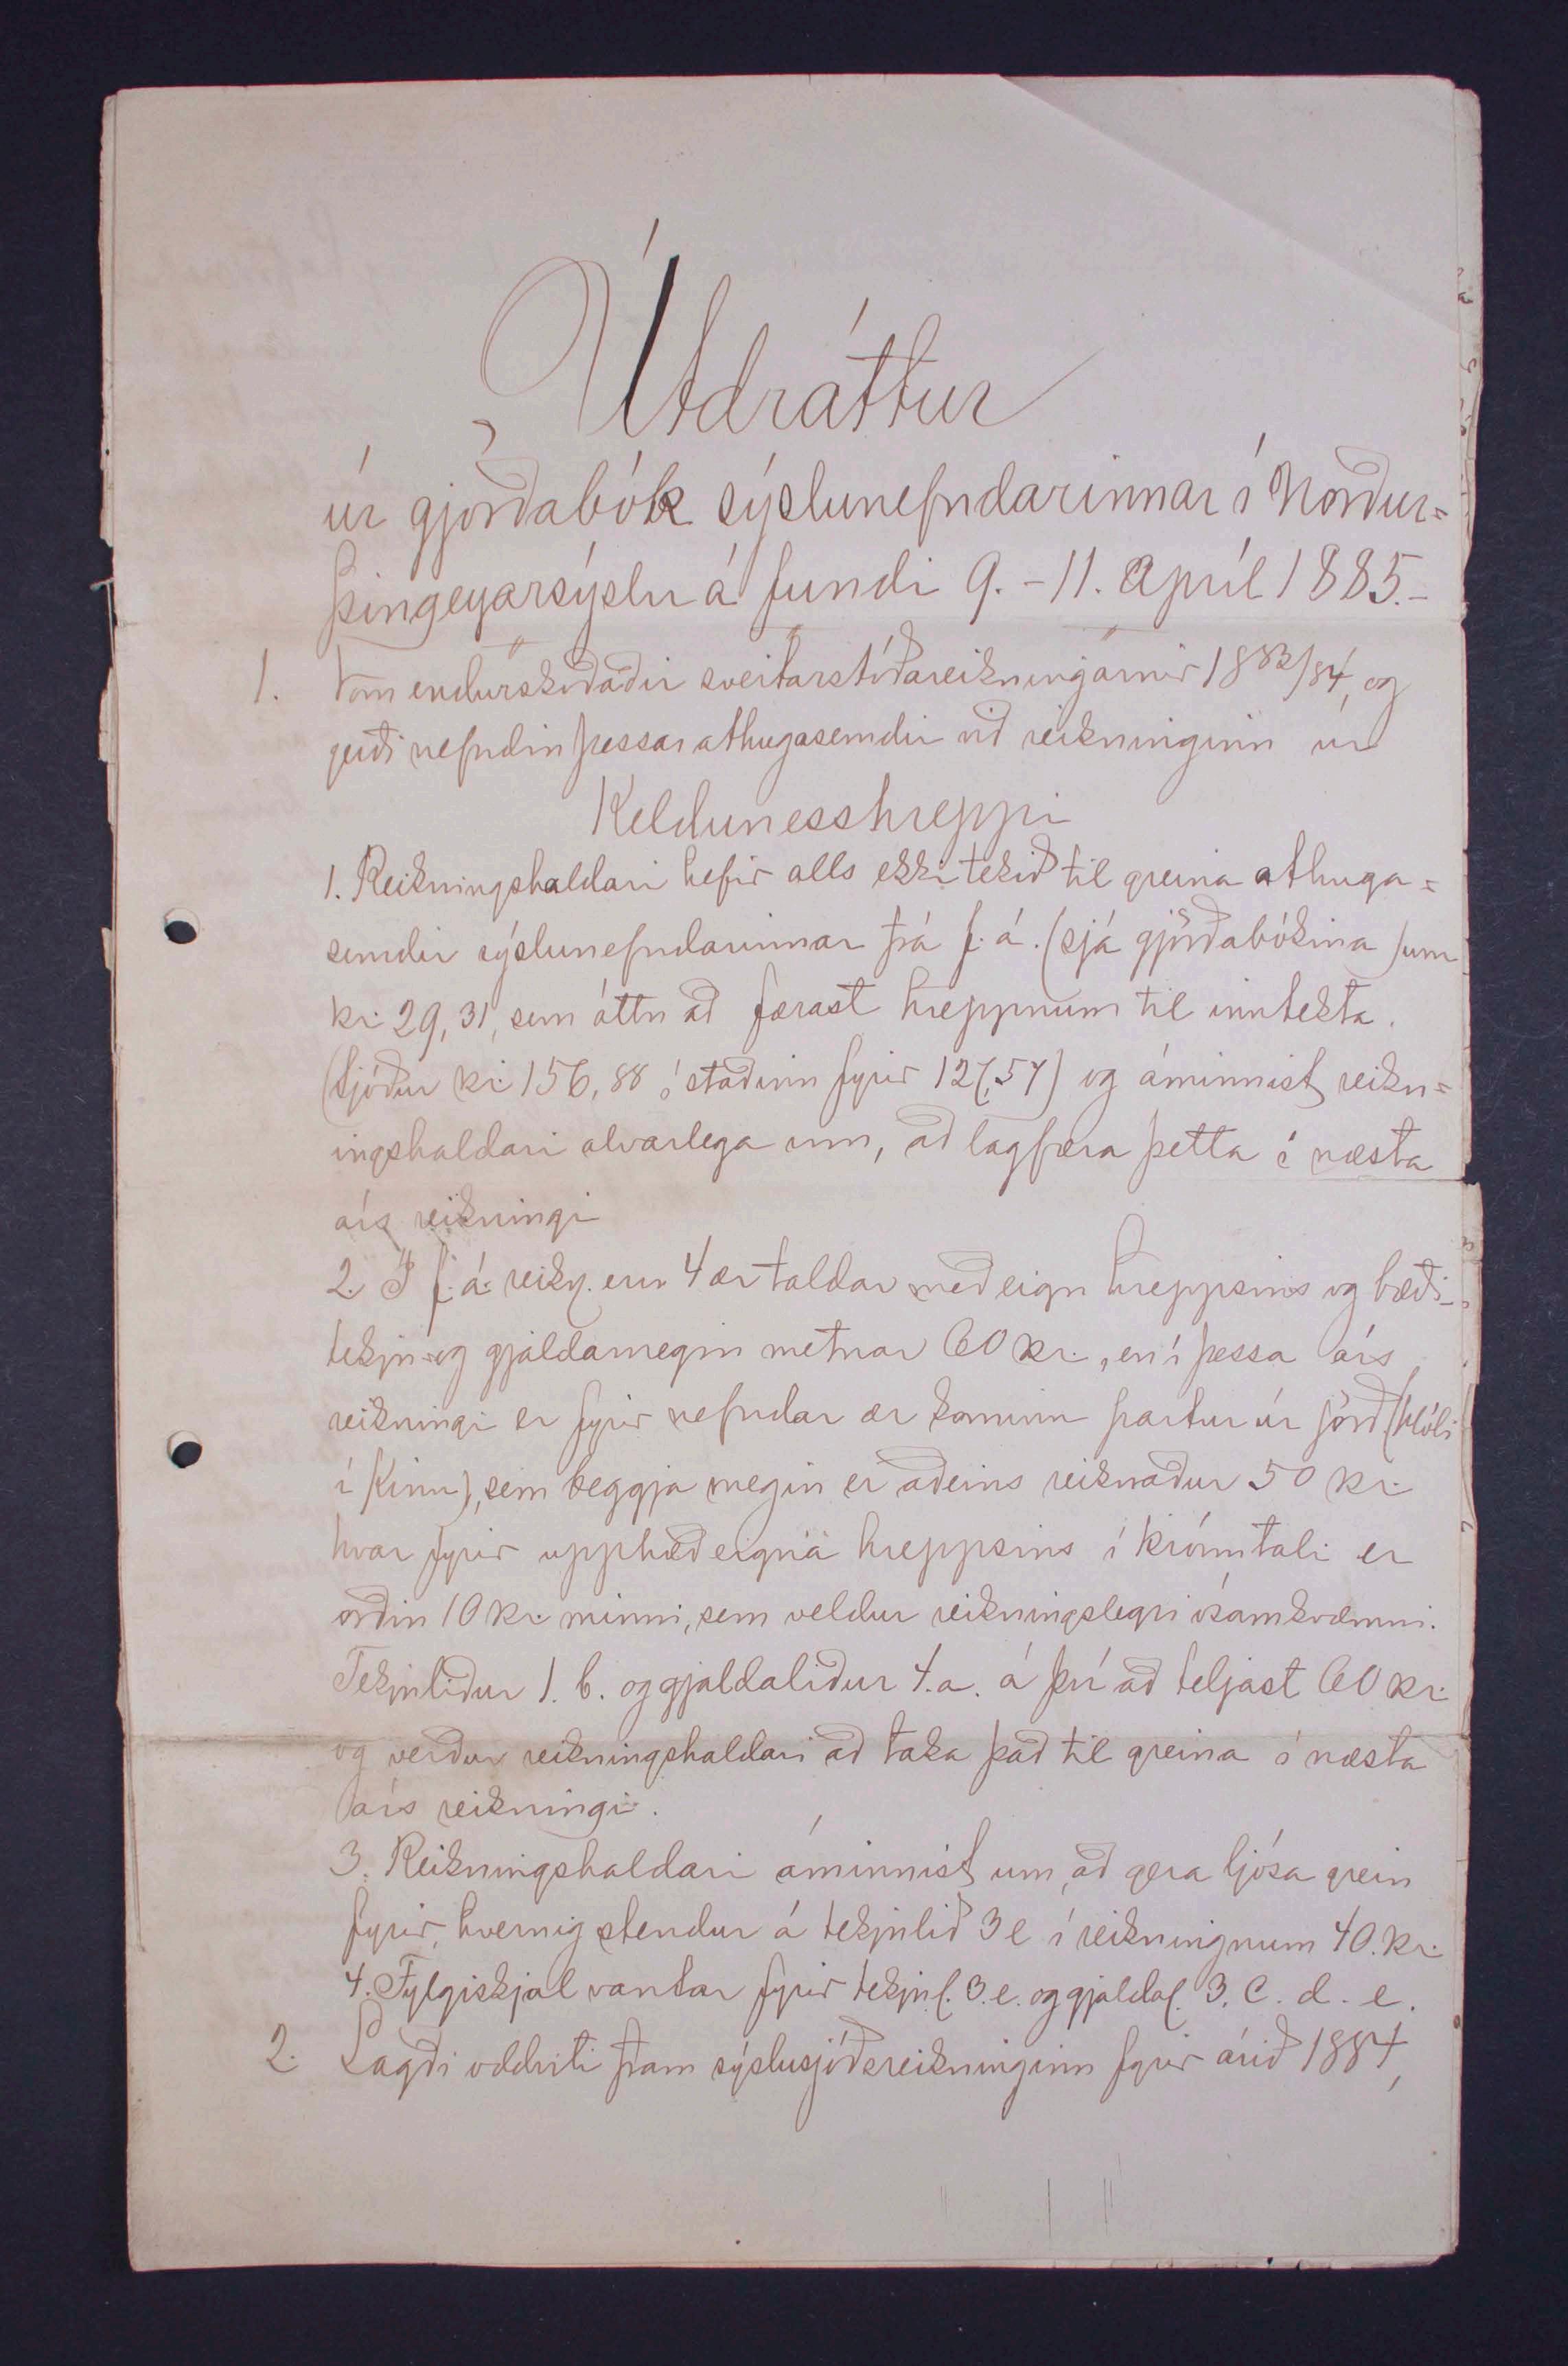 Útdráttur
úr gjörðabók sýslunefndarinnar í Norður=
Þingeyarsýslu á fundi 9. - 11. apríl 1885.-
1. Vóru endurskoðaðir sveitarsjóðareikningarnir 1883/84, og
gerði nefndin þessar athugasemdir við reikninginn úr
Keldunesshreppi
1. Reikningshaldari hefir alls ekki tekið til greina athuga=
semdir sýslunefndarinnar frá f. á. (sjá gjörðabókina) um
kr. 29,31, sem áttu að færast hreppnum til inntekta.
(sjóður kr. 156,88 í staðinn fyrir 127,57) og áminnist reikn=
ingshaldari alvarlega um, að lagfæra þetta í næsta
árs reikningi
2. Í f. á. reikn. eru 4 ær taldar með eign hreppsins og bæði
tekju- og gjaldamegin metnar 60 kr., en í þessa árs
reikningi er fyrir nefndar ær kominn partur úr jörð (Hóli
í Kinn), sem beggja megin er aðeins reiknaður 50 kr.
hvar fyrir upphæð eigna hreppsins í krónutali er
orðin 10 kr. minni, sem veldur reikningslegri ósamkvæmni.
Tekjuliður 1. b. og gjaldaliður 4. a. á því að teljast 60 kr.
og verður reikningshaldari að taka það til greina í næsta
árs reikningi.
3. Reikningshaldari áminnist um, að gera ljósa grein
fyrir, hvernig stendur á tekjulið 3 e í reikningnum 40. kr.
4. Fylgiskjal vantar fyrir tekjul. 3. e. og gjaldal. 3. c. d. e.
2. Lagði oddviti fram sýslusjóðsreikninginn fyrir árið 1884,